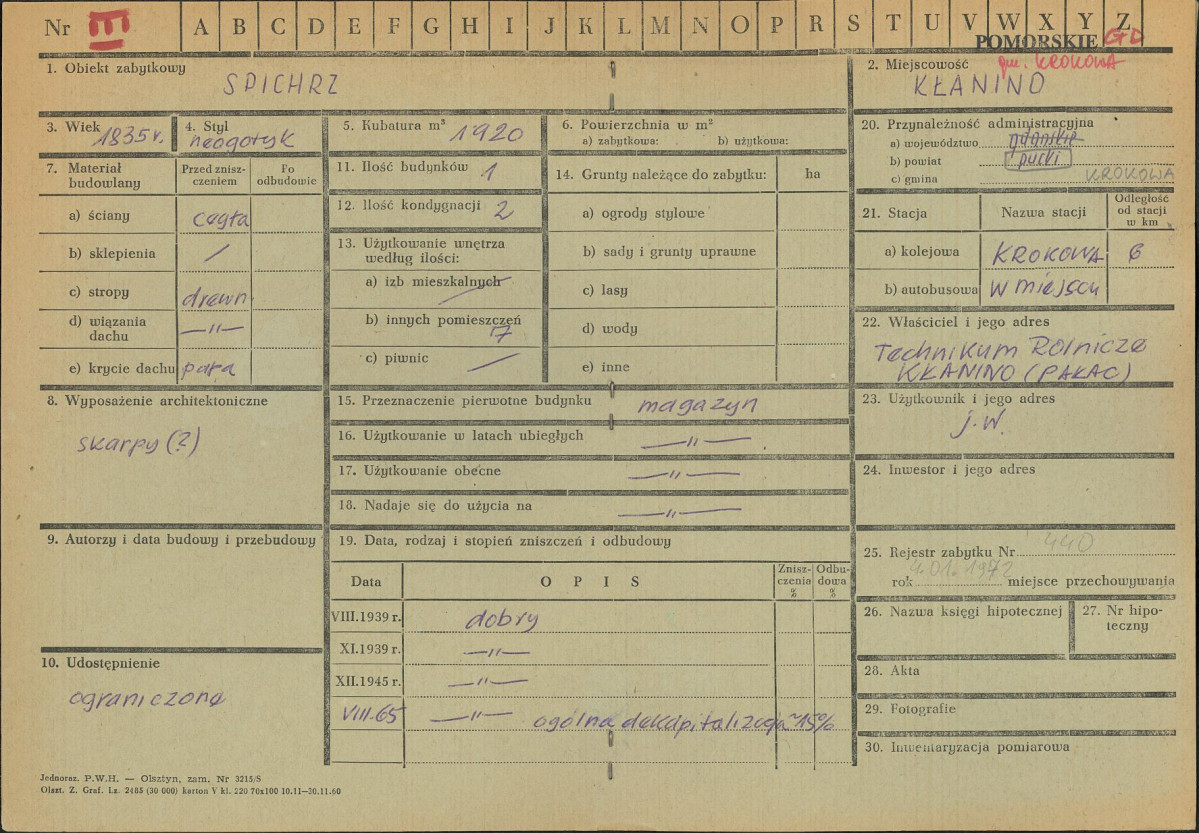 Nr III A B C D E F G H I J K L M N O P R S T U V W X Y Z
POMORSKIE GD
1. Obiekt zabytkowy
SPICHRZ
2. Miejscowość gm. KROKOWA
KŁANINO
3. Wiek 1835 r.
4. Styl
neogotyk
5. Kubatura m³ 1920
6. Powierzchnia w m²
a) zabytkowa: b) użytkowa:
7. Materiał budowlany
Przed zniszczeniem
Po odbudowie
a) ściany cegła
b) sklepienia /
c) stropy drewn.
d) wiązania dachu —"—
e) krycie dachu papa
8. Wyposażenie architektoniczne
skarpy (?)
9. Autorzy i data budowy i przebudowy
10. Udostępnienie
ograniczone
11. Ilość budynków 1
12. Ilość kondygnacji 2
13. Użytkowanie wnętrza
według ilości:
a) izb mieszkalnych —
b) innych pomieszczeń 7
c) piwnic —
14. Grunty należące do zabytku: ha
a) ogrody stylowe
b) sady i grunty uprawne
c) lasy
d) wody
e) inne
15. Przeznaczenie pierwotne budynku magazyn
16. Użytkowanie w latach ubiegłych —"—
17. Użytkowanie obecne —"—
18. Nadaje się do użycia na —"—
19. Data, rodzaj i stopień zniszczeń i odbudowy
Data OPIS Zniszczenia % Odbudowa %
VIII.1939 r. dobry
XI.1939 r. —"—
XII.1945 r. —"—
VIII-65 —"— ogólna dekapitalizacja ~15%
20. Przynależność administracyjna
a) województwo gdańskie
b) powiat pucki
c) gmina KROKOWA
21. Stacja Nazwa stacji Odległość od stacji w km
a) kolejowa KROKOWA 6
b) autobusowa w miejscu
22. Właściciel i jego adres
Technikum Rolnicze
KŁANINO (PAŁAC)
23. Użytkownik i jego adres
j.w.
24. Inwestor i jego adres
25. Rejestr zabytku Nr 440
rok 4.01.1972 miejsce przechowywania
26. Nazwa księgi hipotecznej
27. Nr hipoteczny
28. Akta
29. Fotografie
30. Inwentaryzacja pomiarowa
Jednoraz. P.W.H. — Olsztyn, zam. Nr 3215/S
Olszt. Z. Graf. Lz. 2485 (30 000) karton V kl. 220 70x100 10.11—30.11.60